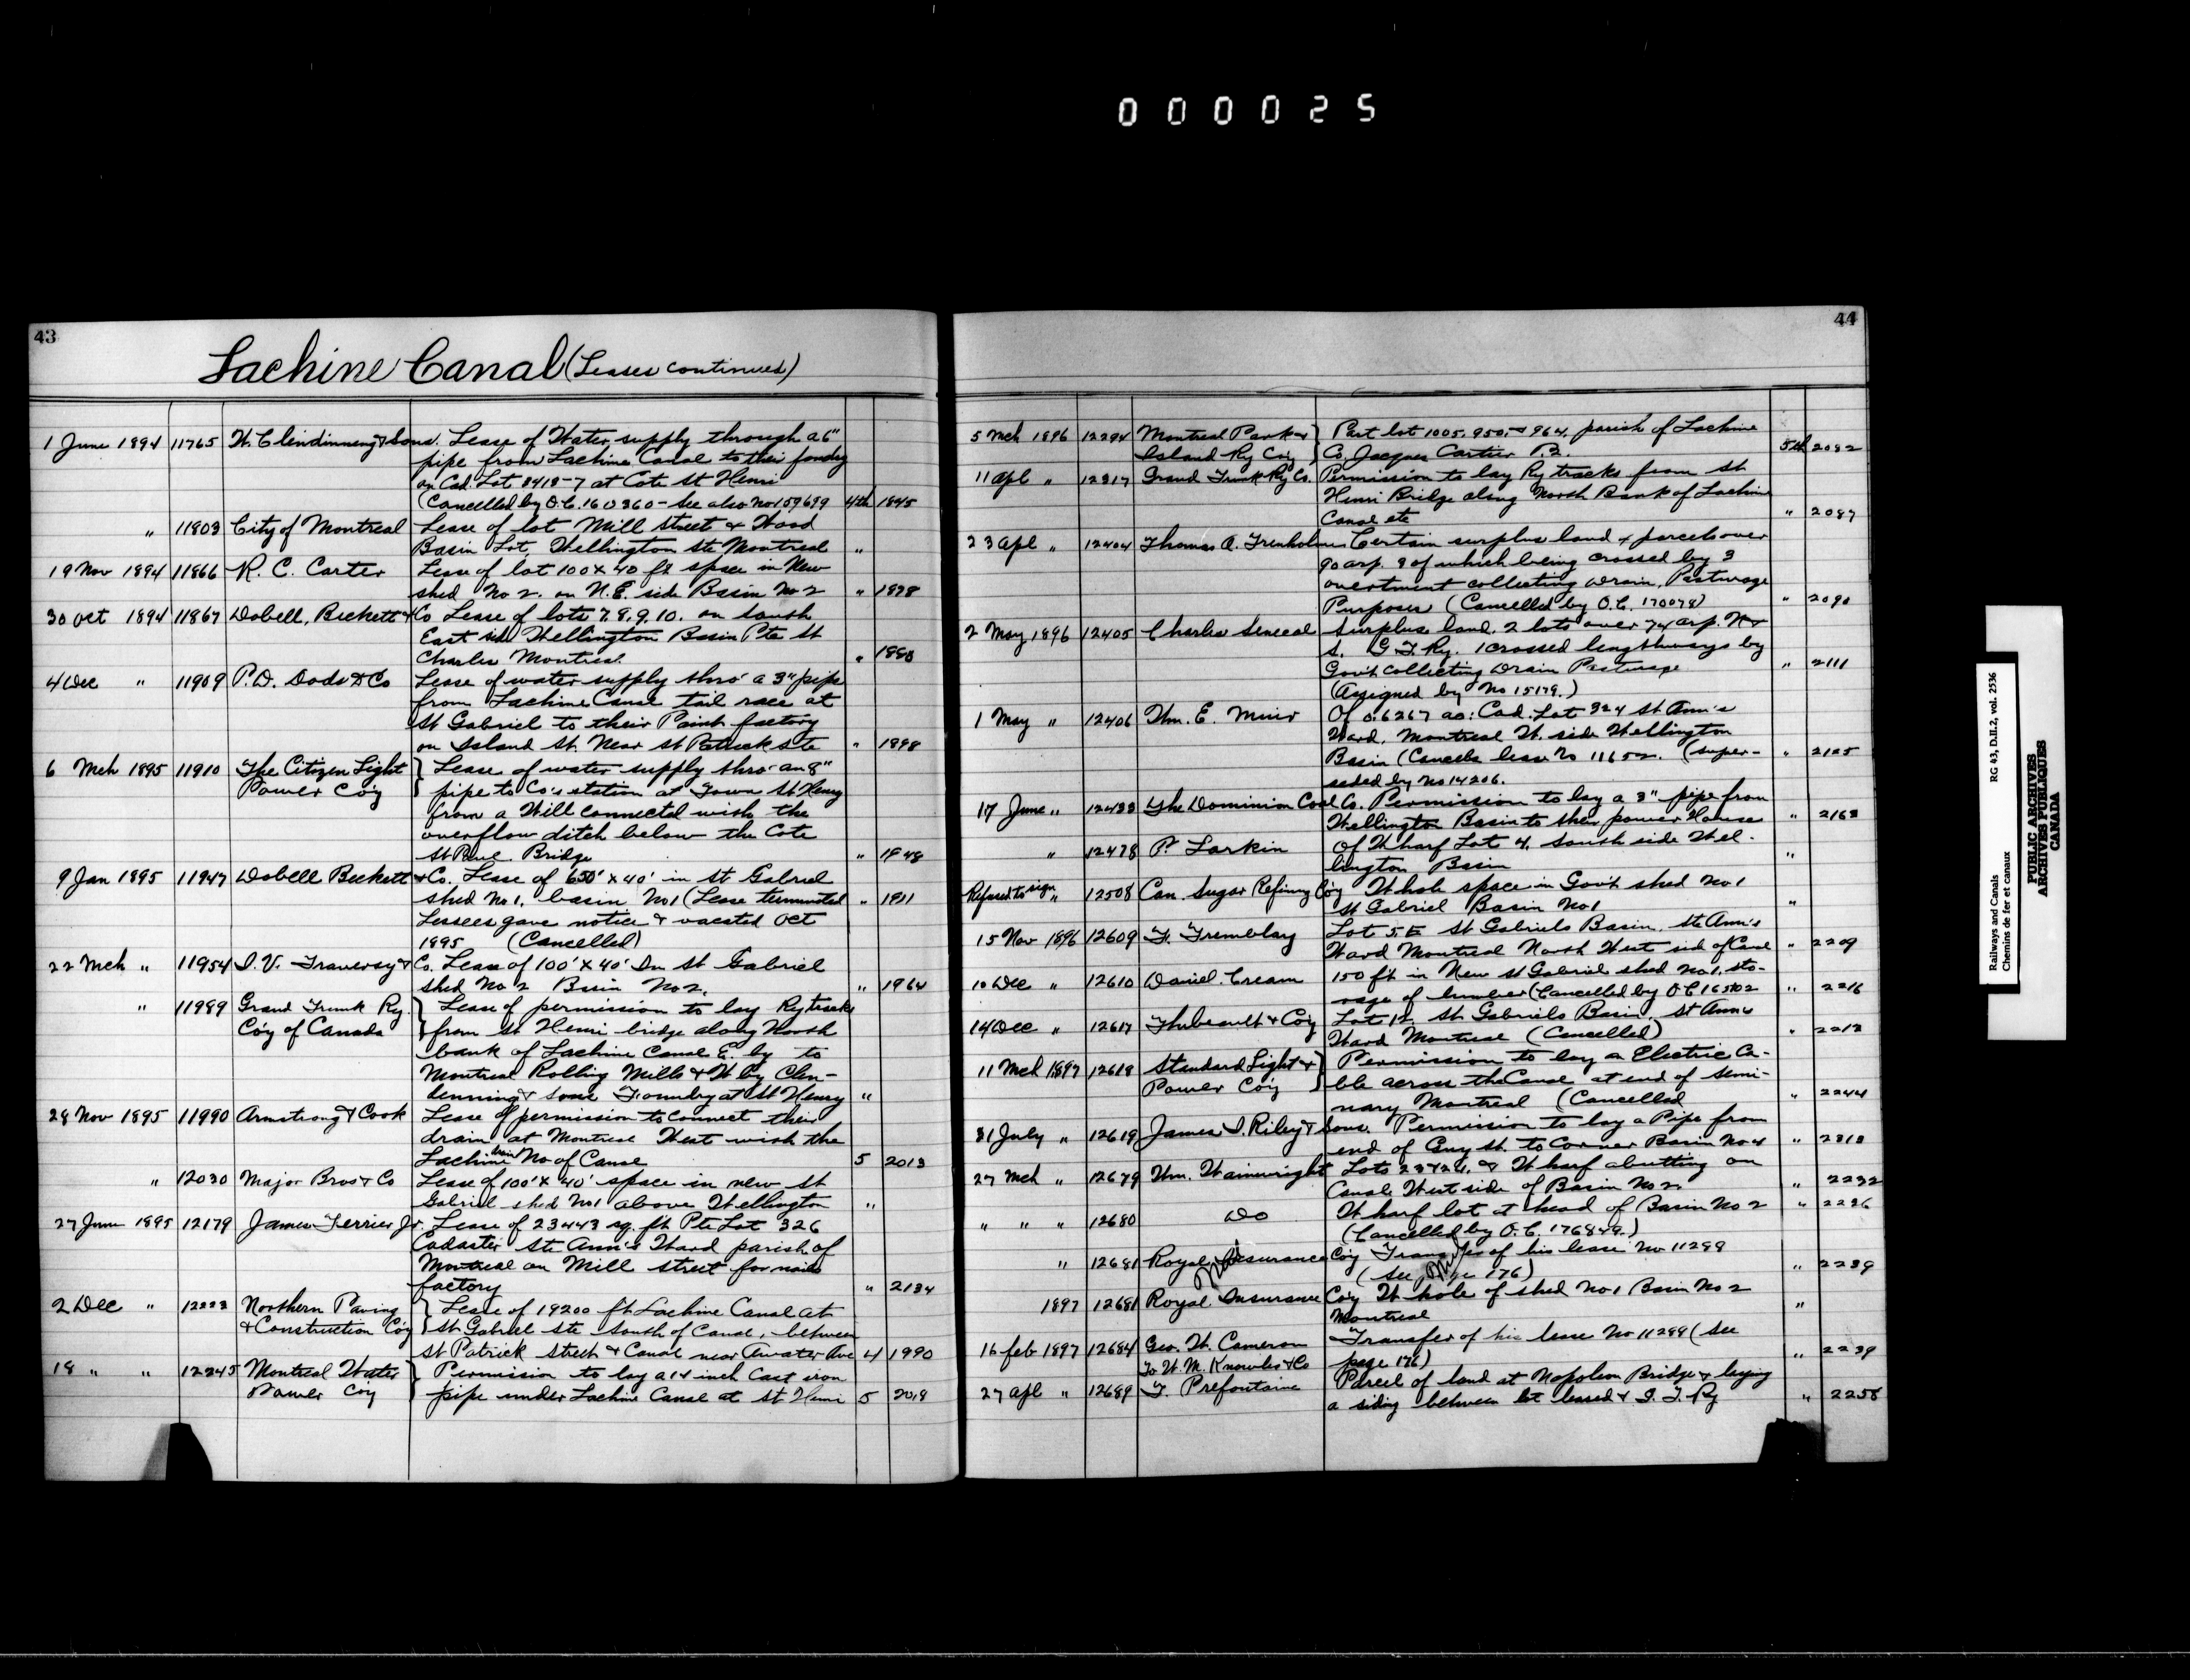 000025
43
Lachine Canal (Leases continued)
1 June 1894 11765 W. Clendinneng & Sons. Lease of Water supply through a 6"
pipe from Lachine Canal to their foundry
on Cad. Lot 3413-7 at Cote St Henri
(Cancelled by O.C. 160360 - See also No 159699 4th 1845
" 11803 City of Montreal Lease of lot Mill street & Wood
Basin Lot, Wellington Ste Montreal "
19 Nov 1894 11866 R. C. Carter Lease of lot 100 x 40 ft space in New
shed No 2. on N.E. side Basin No 2 " 1878
30 Oct 1894 11867 Dobell, Beckett & Co Lease of lots 7. 8. 9. 10. on South
East side Wellington Basin Pte St
Charles Montreal. " 1880
4 Dec " 11909 P. D. Dods & Co Lease of water supply thro' a 3" pipe
from Lachine Canal tail race at
St Gabriel to their Paint factory
on Island St. Near St Patrick Ste " 1898
6 Mch 1895 11910 The Citizen Light } Lease of water supply thro' an 8"
Power Co'y } pipe to Co's station at Town St Henry
from a Will connected with the
overflow ditch below the Cote
St Paul Bridge " 1948
9 Jan 1895 11947 Dobell Beckett & Co. Lease of 650' x 40' in St Gabriel
shed No 1. basin No 1 (Lease terminated " 1911
Lessees gave notice & vacated Oct
1895 (Cancelled)
22 Mch " 11954 I. V. Traversy & Co. Lease of 100' x 40' In St Gabriel
shed No 2 Basin No 2. " 1964
" 11989 Grand Trunk Ry. } Lease of permission to lay Ry tracks
Co'y of Canada } from St Henri bridge along North
bank of Lachine Canal E. by to
Montreal Rolling Mills & W by Clen-
denning & Sons Foundry at St Henry "
28 Nov 1895 11990 Armstrong & Cook Lease of permission to connect their
drain at Montreal West with the
Lachine drain No of Canal 5 2013
" 12030 Major Bros & Co Lease of 100' x 40' space in new St
Gabriel shed No 1 above Wellington "
27 June 1895 12179 James Ferrier Jr. Lease of 23443 sq. ft. Pte Lot 326
Cadaster Ste Ann's Ward parish of
Montreal on Mill street for nails
factory " 2134
2 Dec " 12223 Northern Paving } Lease of 19200 ft Lachine Canal at
& Construction Co'y } St Gabriel Ste South of Canal, between
St Patrick Street & Canal near Atwater Ave 4 1990
18 " " 12245 Montreal Water } Permission to lay a 14 inch Cast iron
Power Co'y } pipe under Lachine Canal at St Henri 5 2019
44
5 Mch 1896 12294 Montreal Park & } Part lot 1005. 950. & 964. parish of Lachine
Island Ry Co'y } Co. Jacques Cartier P.Q. 5th 2082
11 Apl " 12317 Grand Trunk Ry Co. Permission to lay Ry tracks from St
Henri Bridge along North Bank of Lachine
Canal etc " 2087
23 Apl " 12404 Thomas A. Trenholme Certain surplus land & parcels over
90 arp. 8 of which being crossed by 3
collecting Drain, Pasturage
Purposes (Cancelled by O.C. 170078) " 2090
2 May 1896 12405 Charles Senecal Surplus land. 2 lots over 74 arp. N &
S. G T Ry. 1 crossed lengthways by
Gov't Collecting Drain Pasturage " 2111
(Assigned by No 15179.)
1 May " 12406 Wm. E. Muir Of 0.6267 ac: Cad. Lot 324 St Ann's
Ward. Montreal W. side Wellington
Basin (Cancels lease No 11652. (super- " 2125
seded by No 14206.
17 June " 12433 The Dominion Coal Co. Permission to lay a 3" pipe from
Wellington Basin to their power House " 2163
" 12478 P. Larkin Of Wharf Lot 4. South side Wel-
lington Basin "
Refused to sign " 12508 Can. Sugar Refining Co'y Whole space in Gov't shed No 1
St Gabriel Basin No 1 "
15 Nov 1896 12609 F. Tremblay Lot 5. E St Gabriels Basin. Ste Ann's
Ward Montreal North West side of Canal " 2209
10 Dec " 12610 Daniel Cream 150 ft in New St Gabriel shed No 1, sto-
rage of lumber (Cancelled by O C 165102 " 2216
14 Dec " 12617 Thibeault & Co'y Lot 12. St Gabriels Basin, St Ann's
Ward Montreal (Cancelled) " 2213
11 Mch 1897 12618 Standard Light & } Permission to lay a Electric Ca-
Power Co'y } ble across the Canal at end of Semi-
nary Montreal (Cancelled " 2244
31 July " 12619 James I. Riley & Sons. Permission to lay a Pipe from
end of Guy St. to Corner Basin No 4 " 2313
27 Mch " 12679 Wm. Wainwright Lots 23 & 24. & Wharf abutting on
Canal West side of Basin No 2. " 2232
" " " 12680 Do Wharf lot at head of Basin No 2 " 2236
(Cancelled by O. C. 176849.)
" 12681 Royal Insurance Co'y Transfer of his lease No 11299
(See page 176) " 2239
1897 12681 Royal Insurance Co'y Whole of shed No 1 Basin No 2
Montreal "
16 Feb 1897 12684 Geo. W. Cameron Transfer of his lease No 11299 (See
To W. M. Knowles & Co page 176) " 2239
27 Apl " 12689 F. Prefontaine Parcel of land at Napoleon Bridge & laying
a siding between lot leased & G. T. Ry " 2258
Railways and Canals RG 43, D.II.2, vol. 2536
Chemins de fer et canaux
PUBLIC ARCHIVES
ARCHIVES PUBLIQUES
CANADA